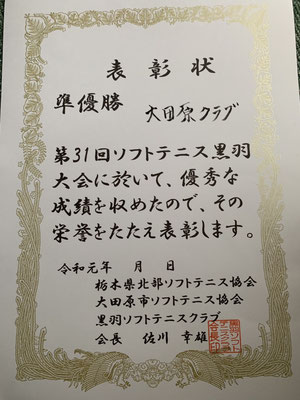 表彰状
準優勝
大田原クラブ
第31回ソフトテニス黒羽
大会に於いて、優秀な
成績を収めたので、その
栄誉をたたえ表彰します。
令和元年 月 日
栃木県北部ソフトテニス協会
大田原市ソフトテニス協会
黒羽ソフトテニスクラブ
会長 佐川 幸雄